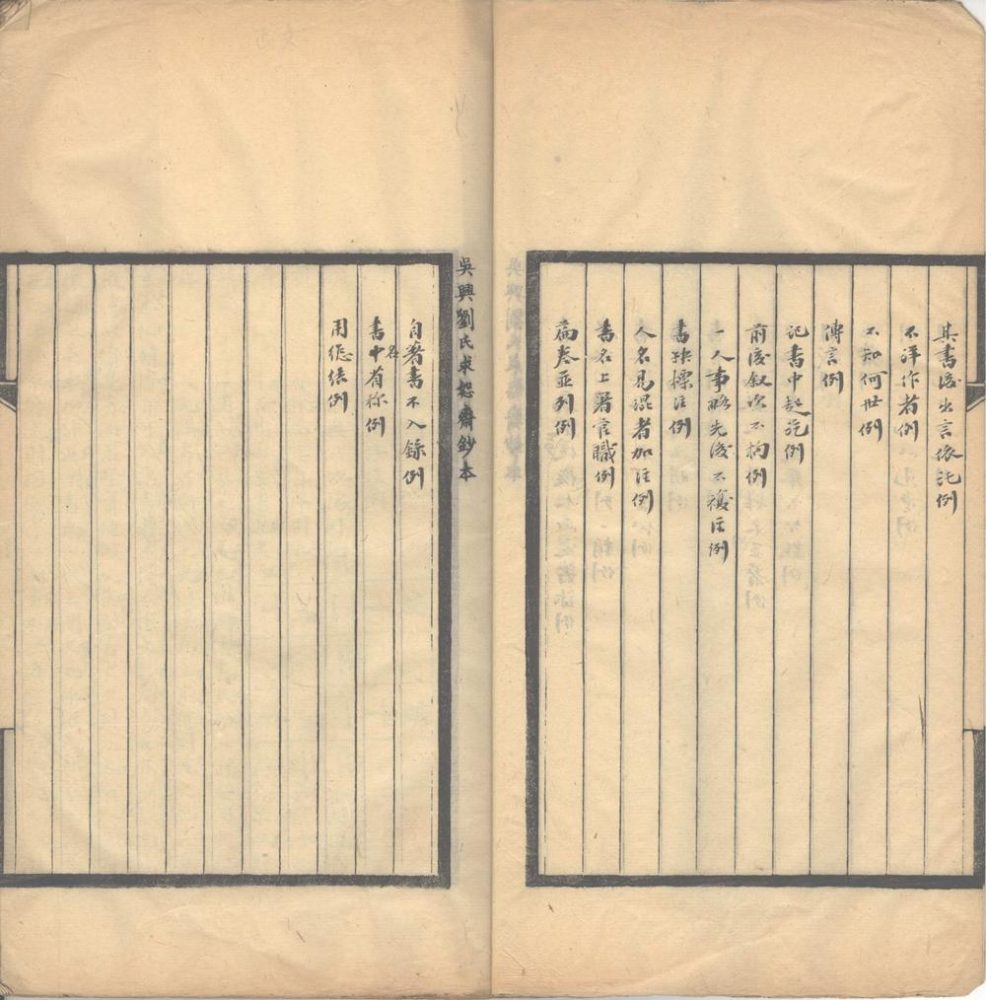 其書後出言依託例
不詳作者例
不知何世例
傳言例
記書中起訖例
前後叙次不拘例
一人事略先後不複注例
書缺標注例
人名易混者加注例
書名上署官職例
篇卷並列例
吳興劉氏求恕齋鈔本
自著書不入錄例
書中名省稱例
用總結例